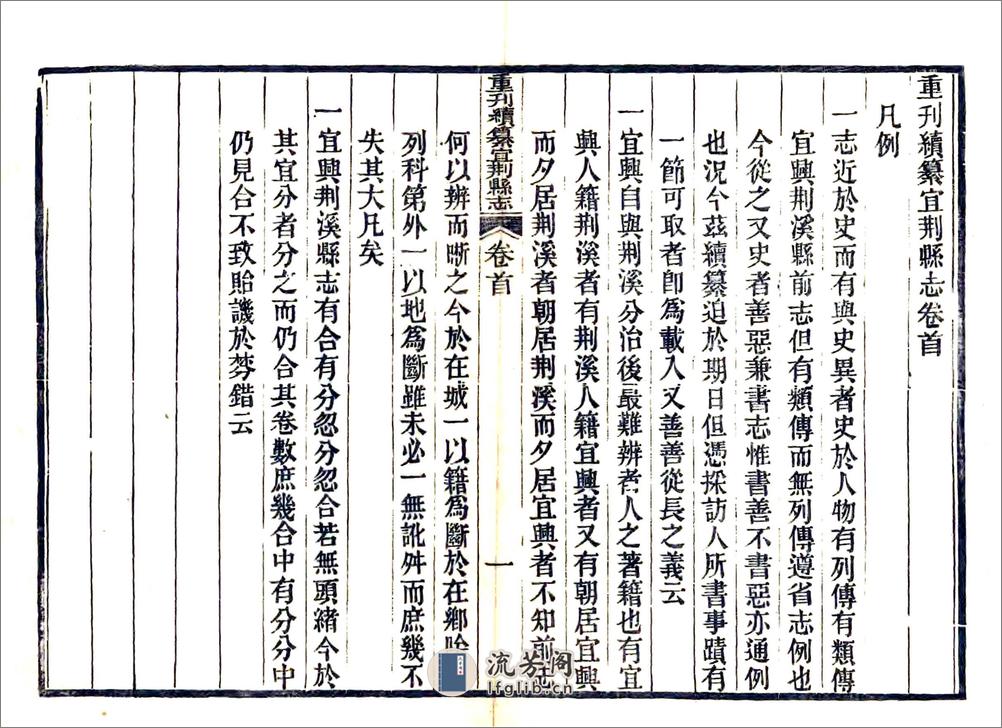 重刊續纂宜荆縣志卷首
凡例
一志近於史而有與史異者史於人物有列傳有類傳
宜興荆溪縣前志但有類傳而無列傳遵省志例也
今從之又史者善惡兼書志惟書善不書惡亦通例
也況今茲續纂迫於期日但憑採訪人所書事蹟有
一節可取者卽爲載入又善善從長之義云
一宜興自與荆溪分治後最難辨者人之著籍也有宜
興人籍荆溪者有荆溪人籍宜興者又有朝居宜興
而夕居荆溪者朝居荆溪而夕居宜興者不知前志
重刊續纂宜荆縣志
卷首
一
何以辨而晰之今於在城一以籍爲斷於在鄉除
列科第外一以地爲斷雖未必一無訛舛而庶幾不
失其大凡矣
一宜興荆溪縣志有合有分忽分忽合若無頭緒今於
其宜分者分之而仍合其卷數庶幾合中有分分中
仍見合不致貽譏於棼錯云
流芳閣
lfglib.cn